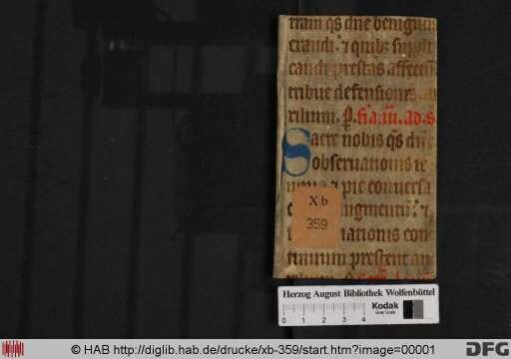 tram qs dne benignus
exaudi. ⁊ quibz suppli
candi prestas affectū
tribue defensionis. au
xilium. P. fīa. iii. ad. s
Sacre nobis qs dne
obseruationis ie
et pie conuersa
augmentū. ⁊
iationis con
tinuum prestent au
X b
359
Herzog August Bibliothek Wolfenbüttel
0 1 2 3 4
Kodak
© HAB http://diglib.hab.de/drucke/xb-359/start.htm?image=00001
DFG